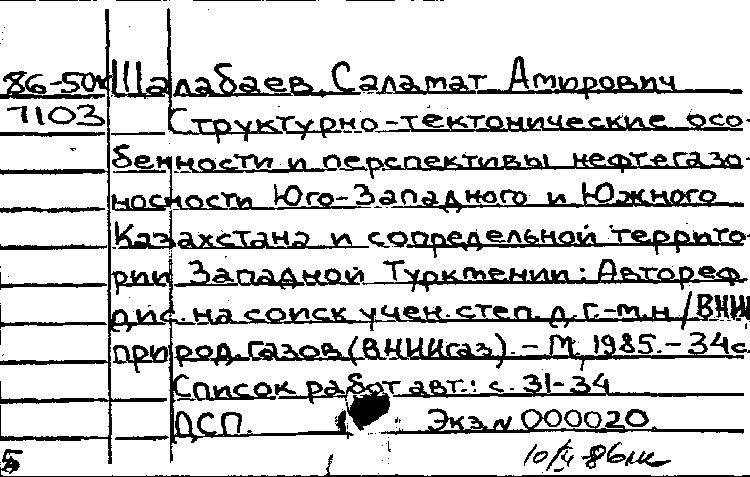 86-50к Шалабаев, Саламат Амирович
7103 Структурно-тектонические осо-
бенности и перспективы нефтегазо-
носности Юго-Западного и Южного
Казахстана и сопредельной террито-
рии Западной Туркмении: Автореф.
дис. на соиск. учен. степ. д. г.-м. н / ВНИИ
природ. газов (ВНИИгаз). - М, 1985. - 34 с.
Список работ авт.: с. 31-34
ДСП. Экз. N 000020.
5